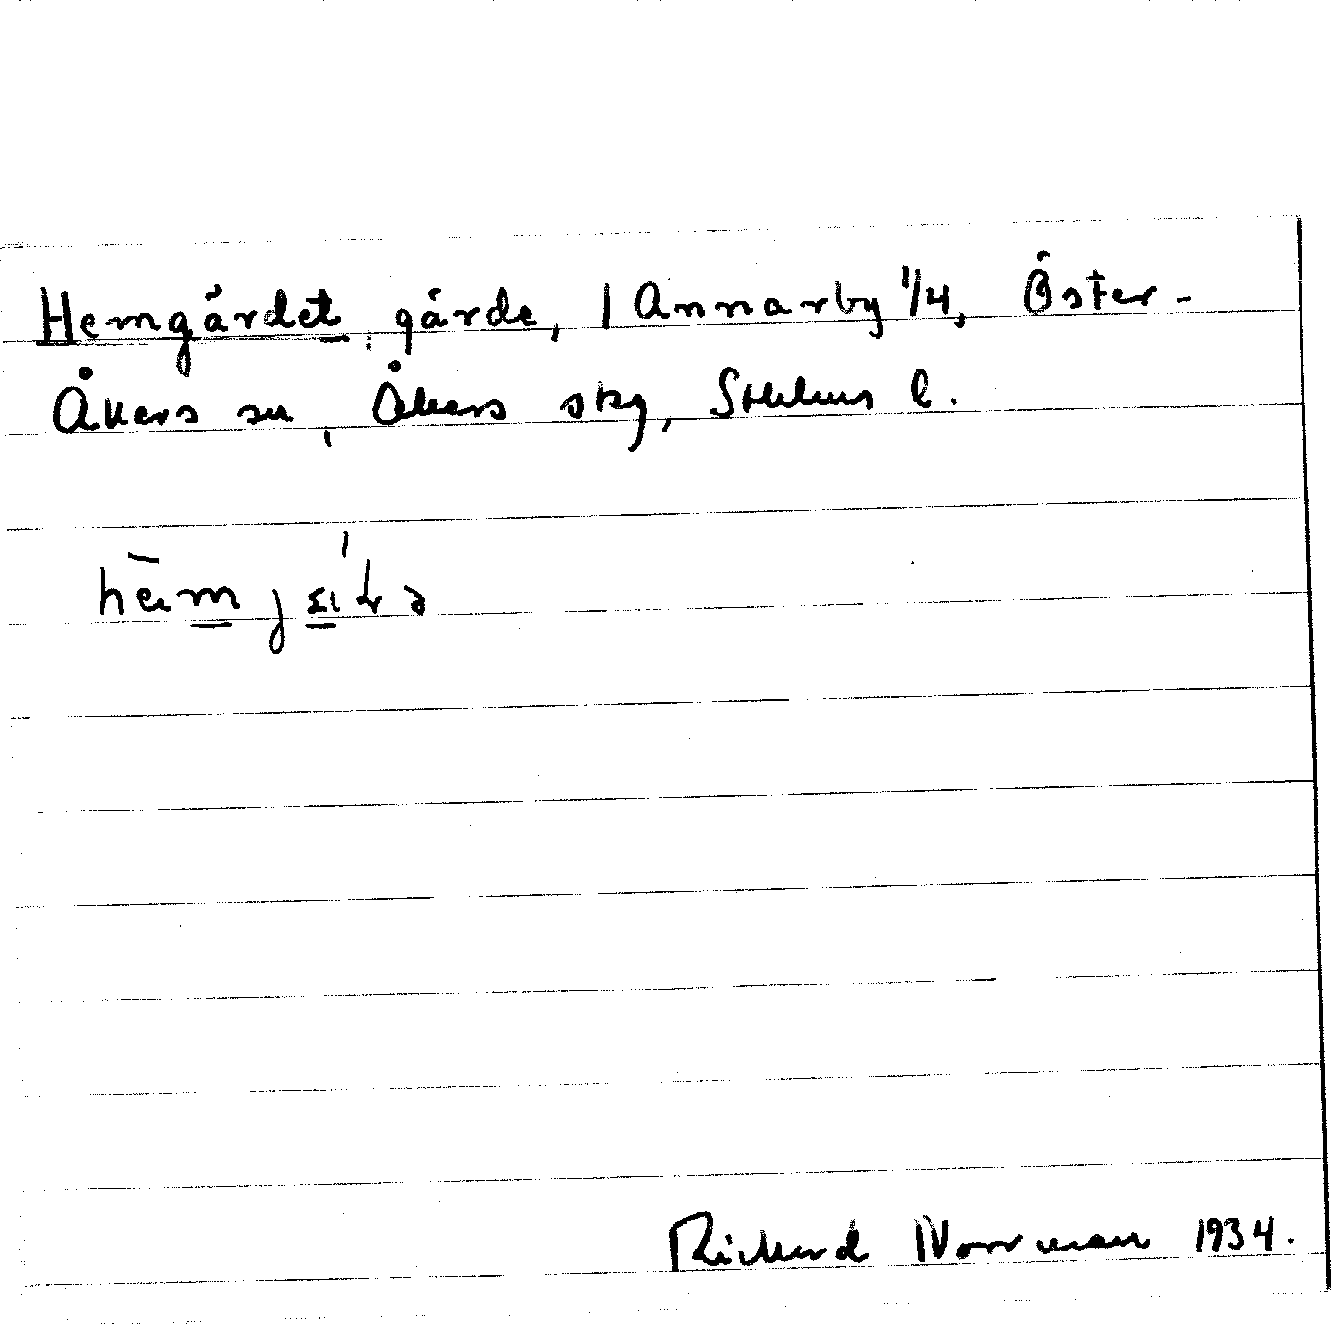 Hemgärdet, gärde, 1 Annarby 1/4, Öster-
Åkers sn, Åkers skg, Sthlms l.
Rickard Norrman 1934.